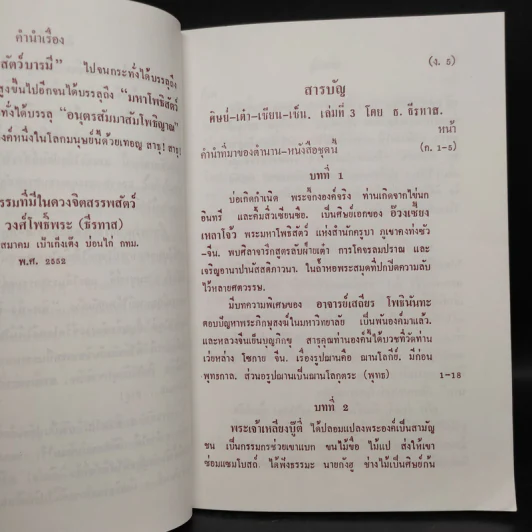 คำนำเรื่อง
สัตว์บารมี" ไปจนกระทั่งได้บรรลุถึง
สูงขึ้นไปอีกจนได้บรรลุถึง "มหาโพธิสัตว์
ทั่งได้บรรลุ "อนุตรสัมมาสัมโพธิญาณ"
งค์หนึ่งในโลกมนุษย์นี้ด้วยเทอญ สาธุ! สาธุ!
รรมที่มีในดวงจิตสรรพสัตว์
วงศ์โพธิ์พระ (ธีรทาส)
สมาคม เป้าเก็งเต็ง บ่อนไก่ กทม.
พ.ศ. 2552
(ง. ธ)
สารบัญ
คิษย์-เต๋า-เซียน-เซ็น. เล่มที่ 3 โดย ธ. ธีรทาส.
หน้า
คำนำที่มาของตำนาน-หนังสือชุดนี้ (ก. 1-5)
บทที่ 1
บ่อเกิดกำเนิด พระจี้กงองค์จริง ท่านเกิดจากไข่นก
อินทรี และคัมภีร์วเซียนซือ. เป็นศิษย์เอกของ
เหลาโจ้ว พระมหาโพธิสัตว์ แห่งสำนักครูบา ภูเขาคงท่งซัว
-จีน. พบศิลาจารึกสูตรลับฝ่ายเต๋า การโคจรลมปราณ และ
เจริญอานาปานัสสติภาวนา. ในถ้ำหอพระสมุดที่ปกปิดความลับ
ไว้หลายศตวรรษ.
มีบทความพิเศษของ อาจารย์เสถียร โพธินันทะ
ตอบปัญหาพระภิกษุสงฆ์ในมหาวิทยาลัย เป็นพันองค์มาแล้ว.
และหลวงจีนเย็นบุญภิกขุ สาธุคุณท่านองค์นี้ได้บวชที่วัดท่าน
เว่ยหล่าง โซกาย จีน. เรื่องรูปฌานคือ ฌานโลกีย์. มีก่อน
พุทธกาล. ส่วนอรูปฌานเป็นฌานโลกุตระ (พุทธ) 1-18
บทที่ 2
พระเจ้าเหลียงบู๊ตี่ ได้ปลอมแปลงพระองค์เป็นสามัญ
ชน เป็นกรรมกรช่วยเขาแบก ขนไม้ขื่อ ไม้แป ส่งให้เขา
ซ่อมแซมโบสถ์. ได้ฟังธรรมะ นายกังฮู ช่างไม้เป็นศิษย์ก้น